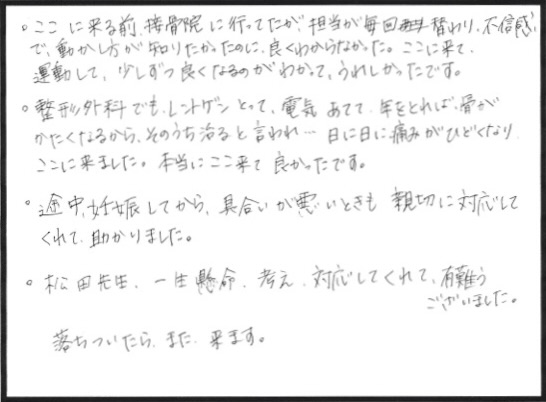 。ここに来る前、接骨院に行ってたが、担当が毎回替わり、不信感
で、動かし方が知りたかったのに、良くわからなかった。ここに来て、
運動して、少しずつ良くなるのがわかって、うれしかったです。
。整形外科でも、レントゲンとって、電気あてて、年をとれば、骨が
かたくなるから、そのうち治ると言われ… 日に日に痛みがひどくなり
ここに来ました。本当にここ来て良かったです。
。途中、妊娠してから、具合いが悪いときも親切に対応して
くれて、助かりました。
。松田先生、一生懸命、考え、対応してくれて、有難う
ございました。
落ちついたら、また、来ます。